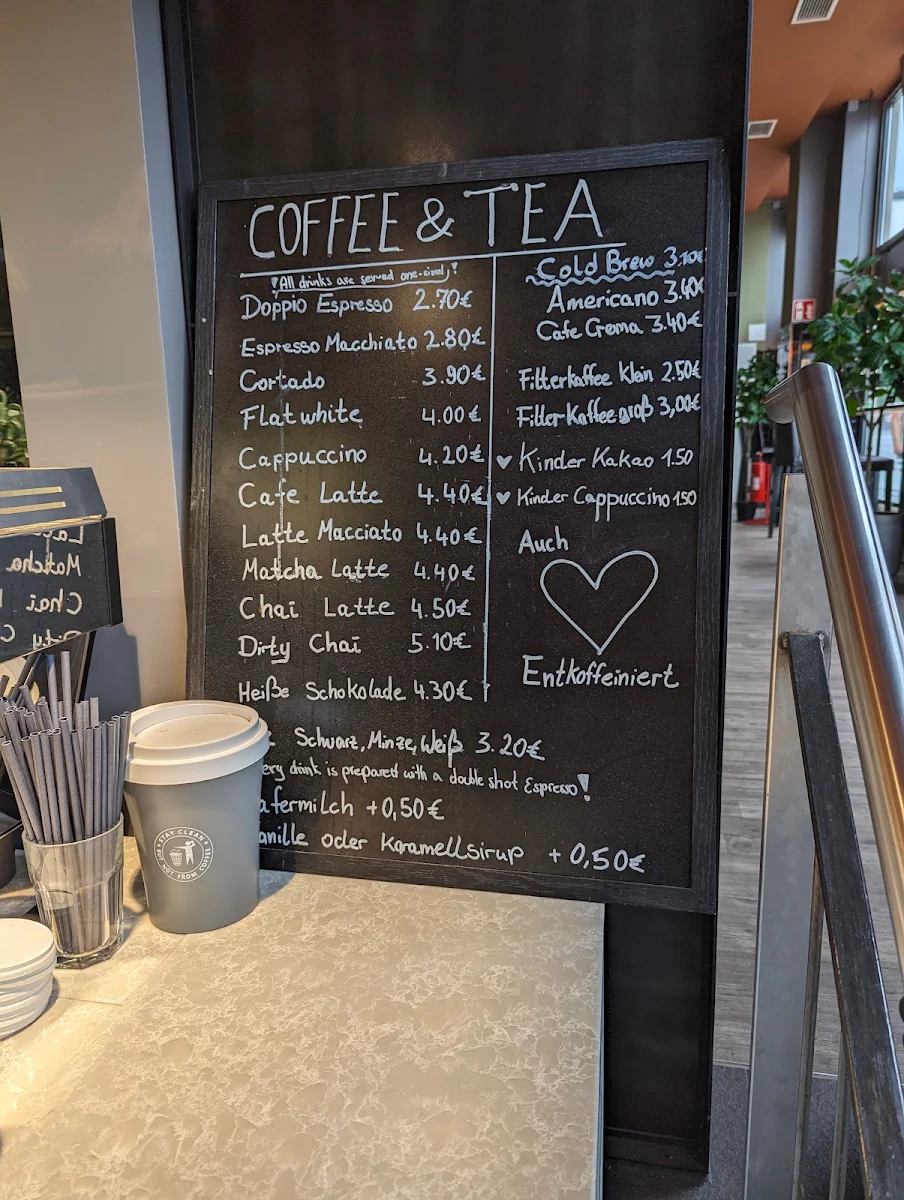 COFFEE & TEA
!All drinks are served one-sized!
Doppio Espresso 2.70€
Espresso Macchiato 2.80€
Cortado 3.90€
Flat white 4.00€
Cappuccino 4.20€
Cafe Latte 4.40€
Latte Macciato 4.40€
Matcha Latte 4.40€
Chai Latte 4.50€
Dirty Chai 5.10€
Heiße Schokolade 4.30€
Cold Brew
Americano 3.40€
Cafe Crema 3.40€
Filterkaffee Klein 2.50€
Filter-Kaffee groß 3,00€
♥ Kinder Kakao 1.50
♥ Kinder Cappuccino 1.50
Auch
Entkoffeiniert
Schwarz, Minze, Weiß 3.20€
ery drink is prepared with a double shot Espresso!
afermilch +0,50€
anille oder Karamellsirup +0,50€
STAY CLEAN
BUT NOT FROM COFFEE
Matcha
Chai